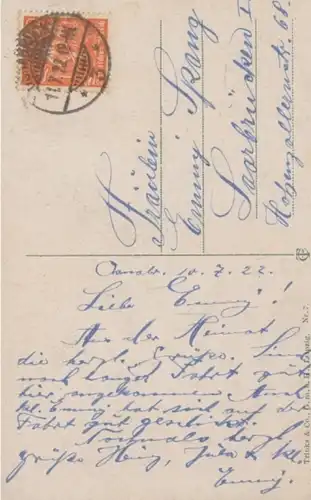 Fräulein
Emmy Spang
Saarbrücken I
Hohenzollernstr 68.
10.7.22.
Liebe Emmy!
Aus der Heimat
die herzl. Grüße. Sind
nach langer Fahrt gut
hier angekommen. Auch
kl. Emmy hat sich auf der
Fahrt gut
Nochmals herzl
grüße Heinz, Jula & kl
Emmy.
Trinks & Co., G.m.b.H. Leipzig. Nr. 7.